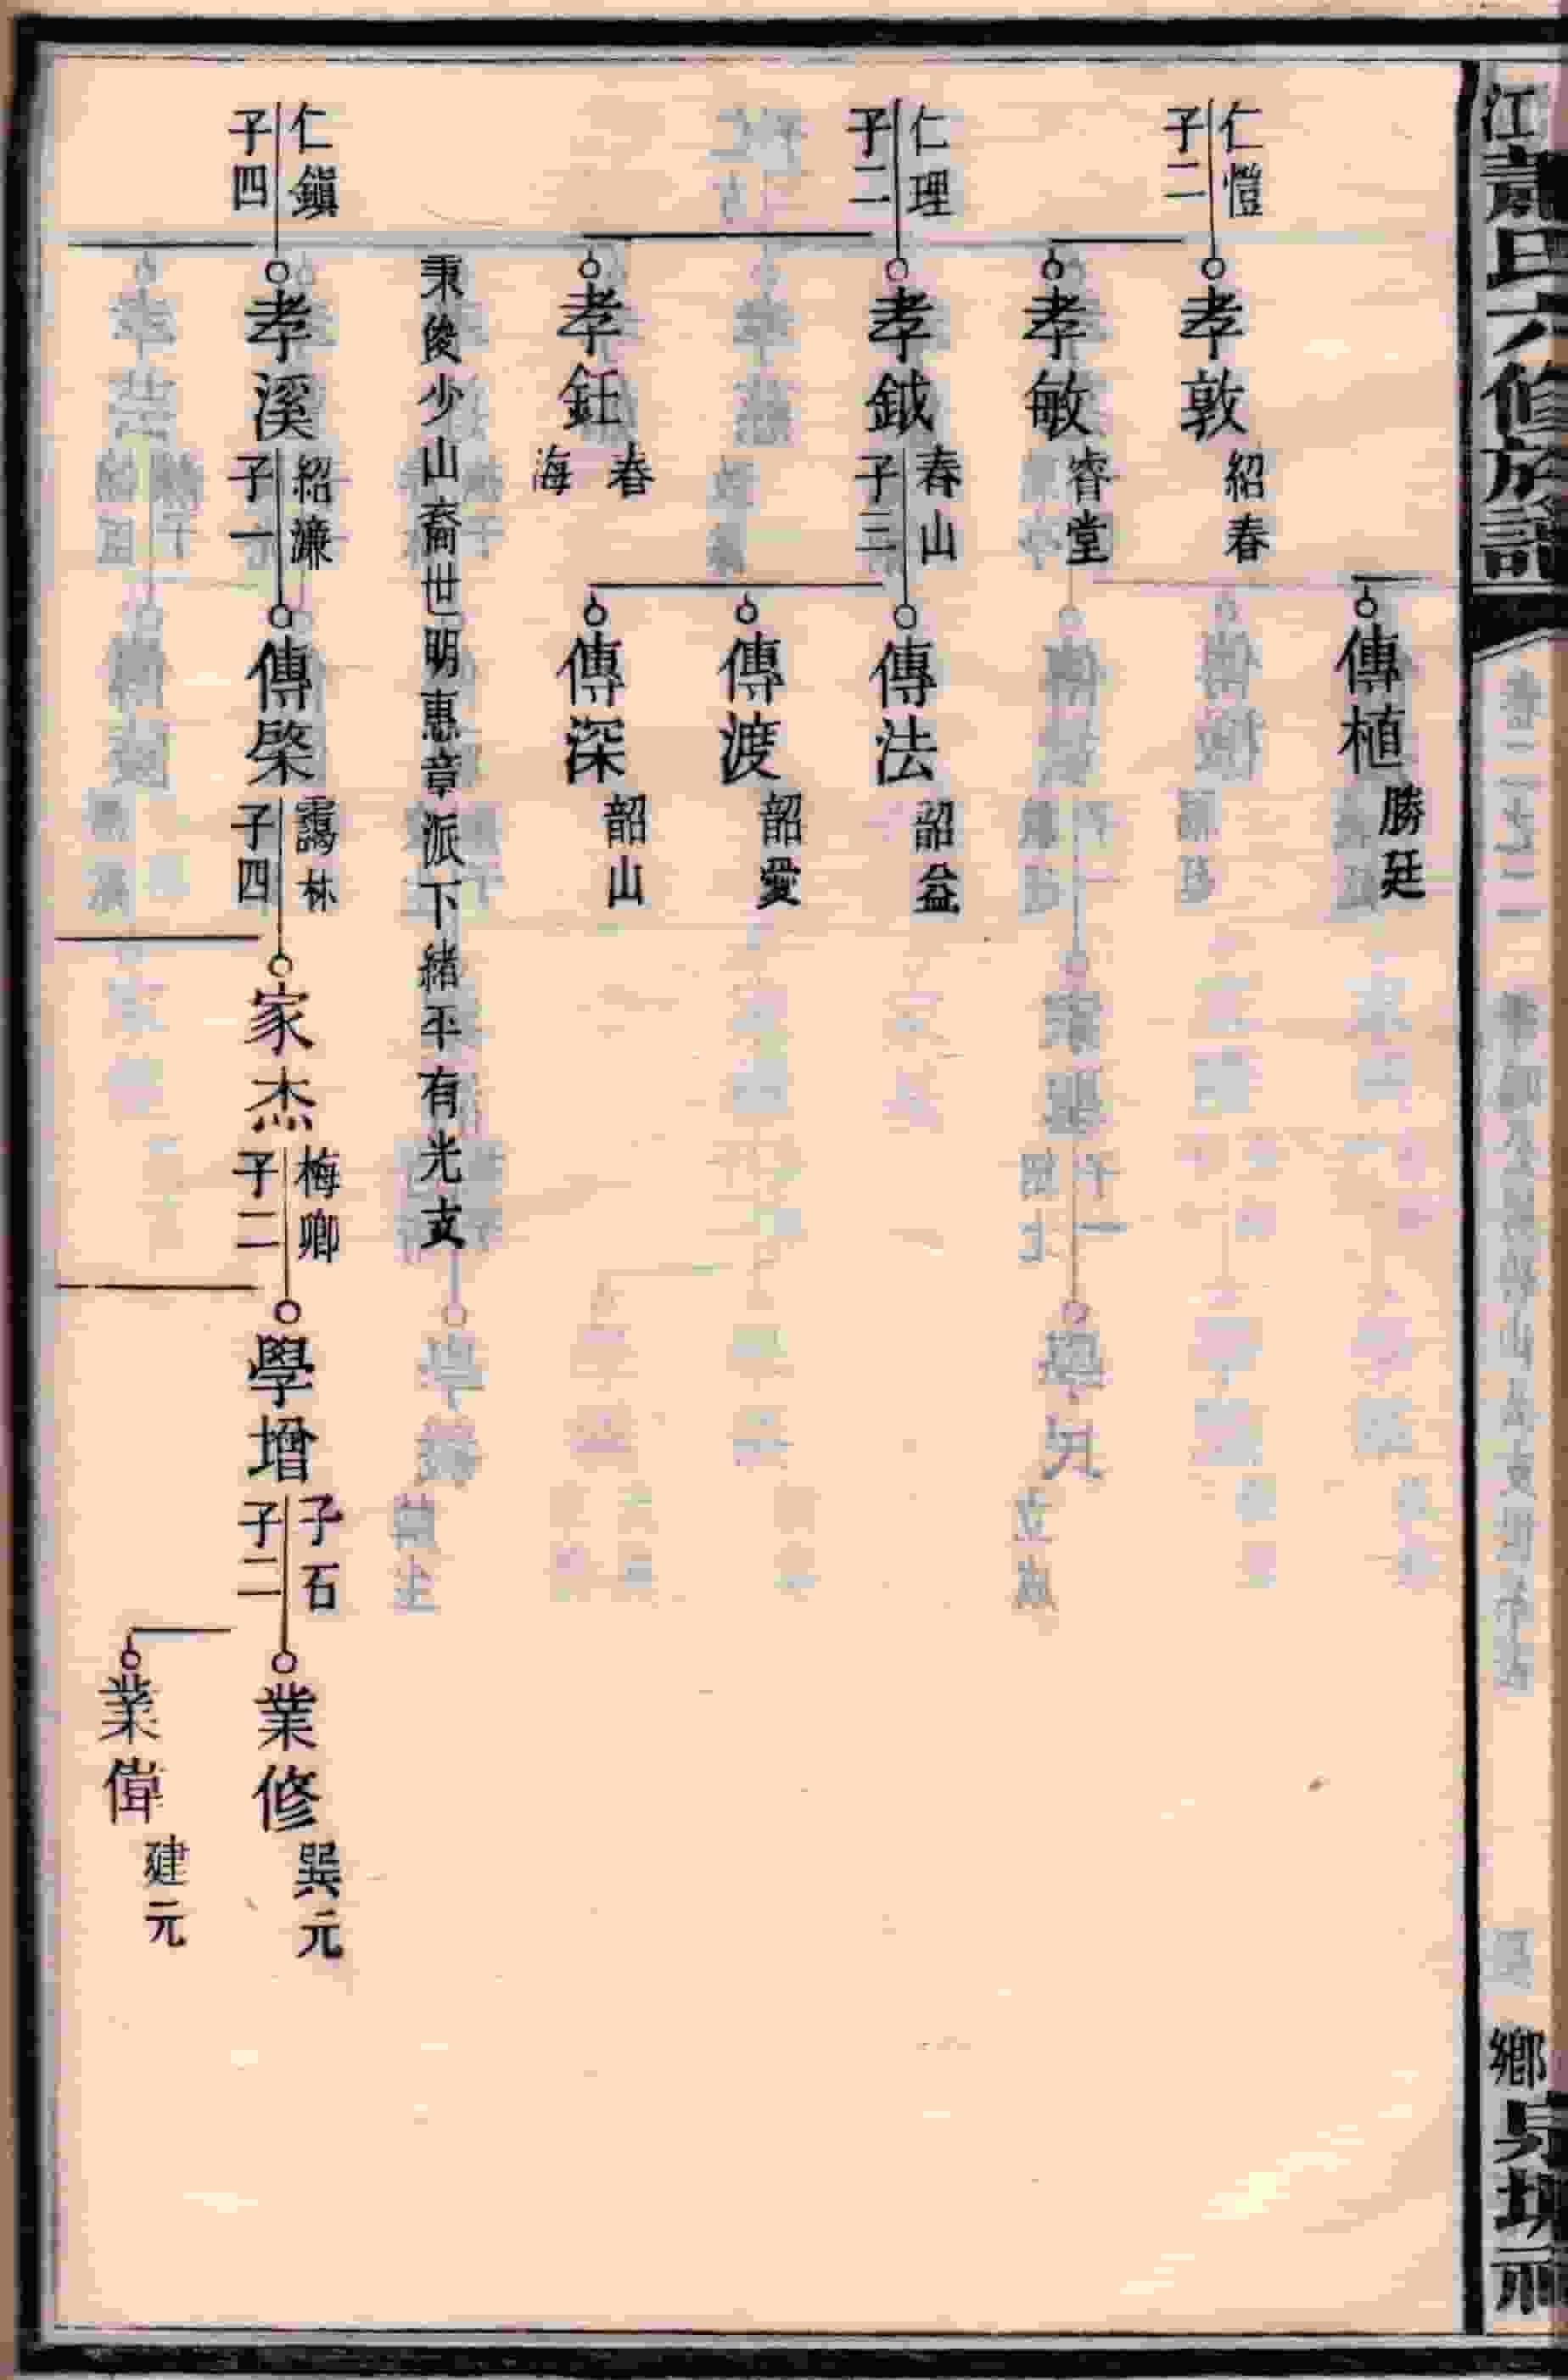 江蕭氏六修族譜
鄉
傳植 勝廷
仁愷 子二
孝敦 紹春
孝敏 睿堂
仁理 子二
孝鉞 春山 子三
傳法 韶益
傳渡 韶愛
孝鈺 春海
傳深 韶山
秉俊少山裔世明惠章派下緒平有光支
仁鎮 子四
孝溪 紹濂 子一
傳棨 靄林 子四
家杰 梅鄉 子二
學增 子石 子二
業修 巽元
業偉 建元